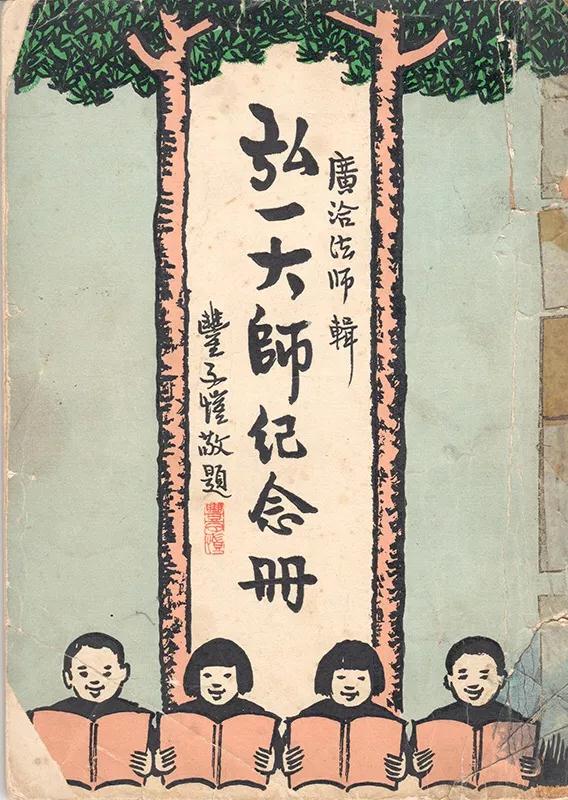 廣洽法師輯
弘一大師纪念冊
豐子愷敬題
豐子愷